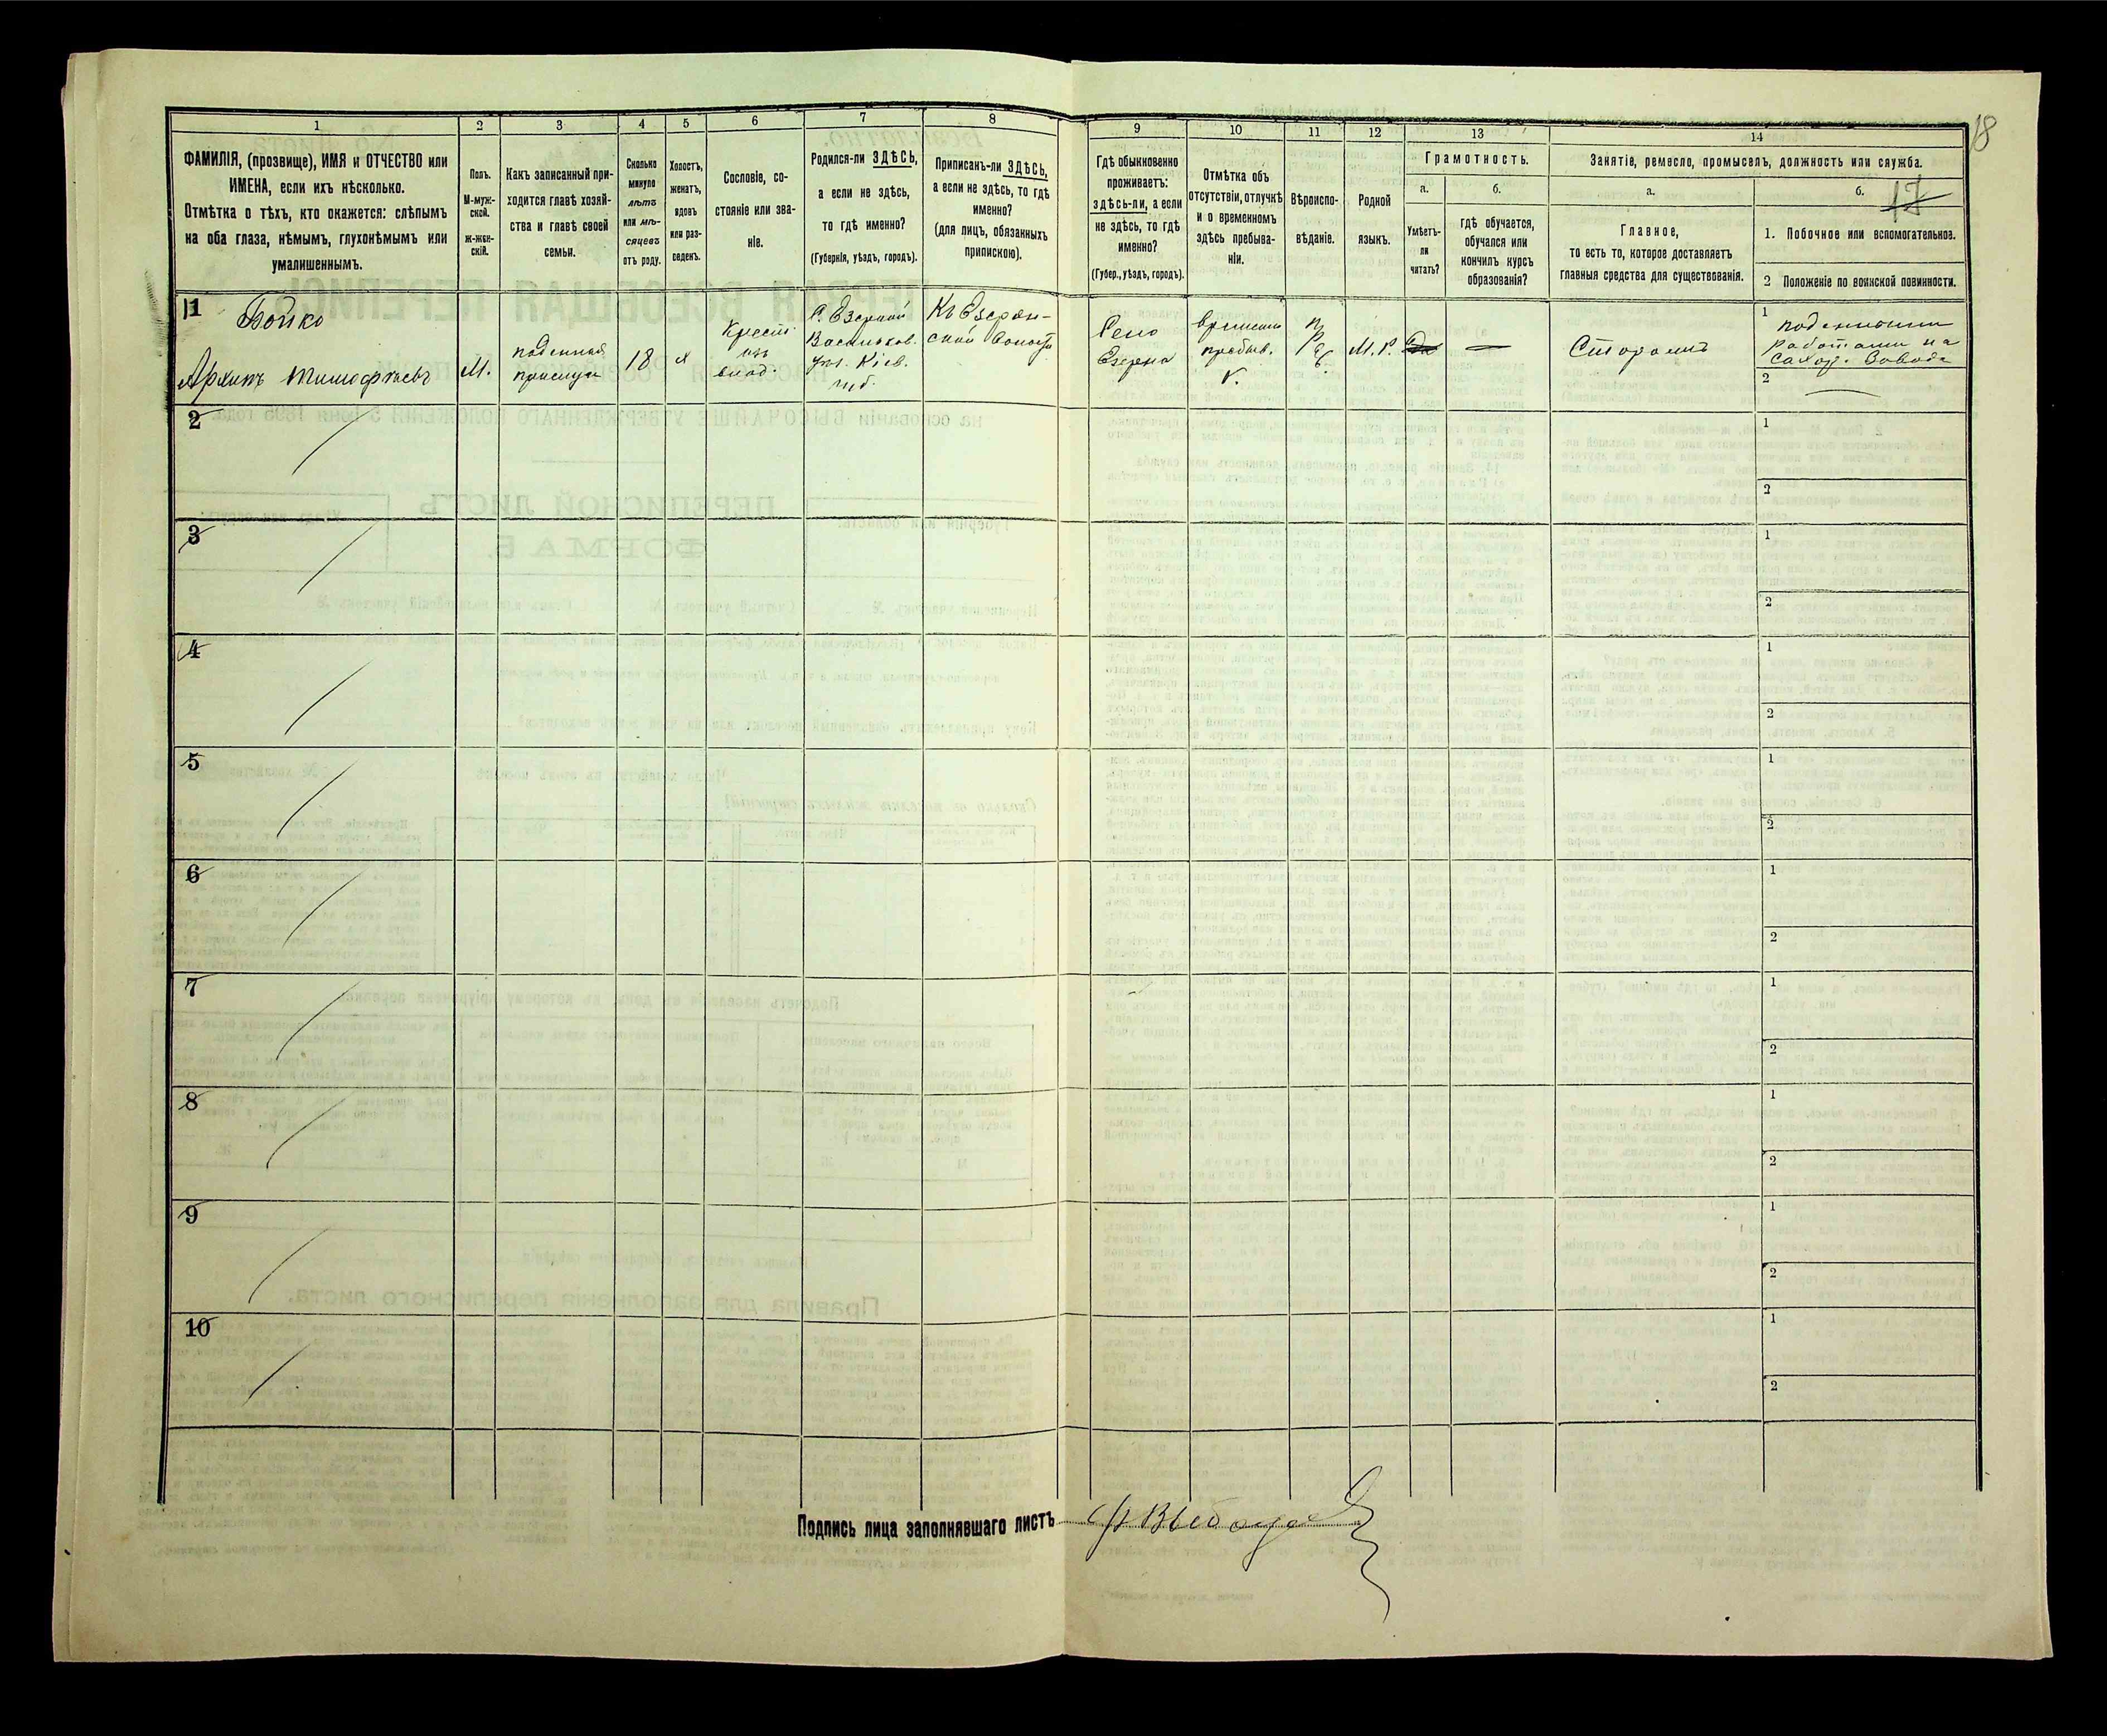 1
2
3
4
5
6
7
8
9
10
11
12
13
14
18
17
ФАМИЛІЯ, (прозвище), ИМЯ и ОТЧЕСТВО или
ИМЕНА, если ихъ нѣсколько.
Отмѣтка о тѣхъ, кто окажется: слѣпымъ
на оба глаза, нѣмымъ, глухонѣмымъ или
умалишеннымъ.
Полъ.
М-муж-
ской.
ж-жен-
скій.
Какъ записанный при-
ходится главѣ хозяй-
ства и главѣ своей
семьи.
Сколько
минуло
лѣтъ
или мѣ-
сяцевъ
отъ роду.
Холостъ,
женатъ,
вдовъ
или раз-
веденъ.
Сословіе, со-
стояніе или зва-
ніе.
Родился-ли ЗДѢСЬ,
а если не здѣсь,
то гдѣ именно?
(Губернія, уѣздъ, городъ).
Приписанъ-ли ЗДѢСЬ,
а если не здѣсь, то гдѣ
именно?
(для лицъ, обязанныхъ
припискою).
Гдѣ обыкновенно
проживаетъ:
здѣсь-ли, а если
не здѣсь, то гдѣ
именно?
(Губер., уѣздъ, городъ).
Отмѣтка объ
отсутствіи, отлучкѣ
и о временномъ
здѣсь пребыва-
ніи.
Вѣроиспо-
вѣданіе.
Родной
языкъ.
Грамотность.
а.
б.
Умѣетъ-
ли
читать?
гдѣ обучается,
обучался или
кончилъ курсъ
образованія?
Занятіе, ремесло, промыселъ, должность или служба.
а.
б.
Главное,
то есть то, которое доставляетъ
главныя средства для существованія.
1. Побочное или вспомогательное.
2 Положеніе по воинской повинности.
1
Бойко
Архипъ Тимофѣевъ
М.
поденная
прислуга
18
х
Крест.
изъ
влад.
С. Езерной
Васильков.
уѣз. Кіев.
губ.
Къ Езерян-
ской волости
Село
Езерна
временно
пребыв.
М. Р.
Да
—
Сторожъ
1
поденными
работами на
Сахар. Заводѣ
2
—
2
1
2
3
1
2
4
1
2
5
1
2
6
1
2
7
1
2
8
1
2
9
1
2
10
1
2
Подпись лица заполнявшаго листъ